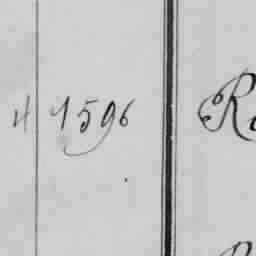 4 1596 R